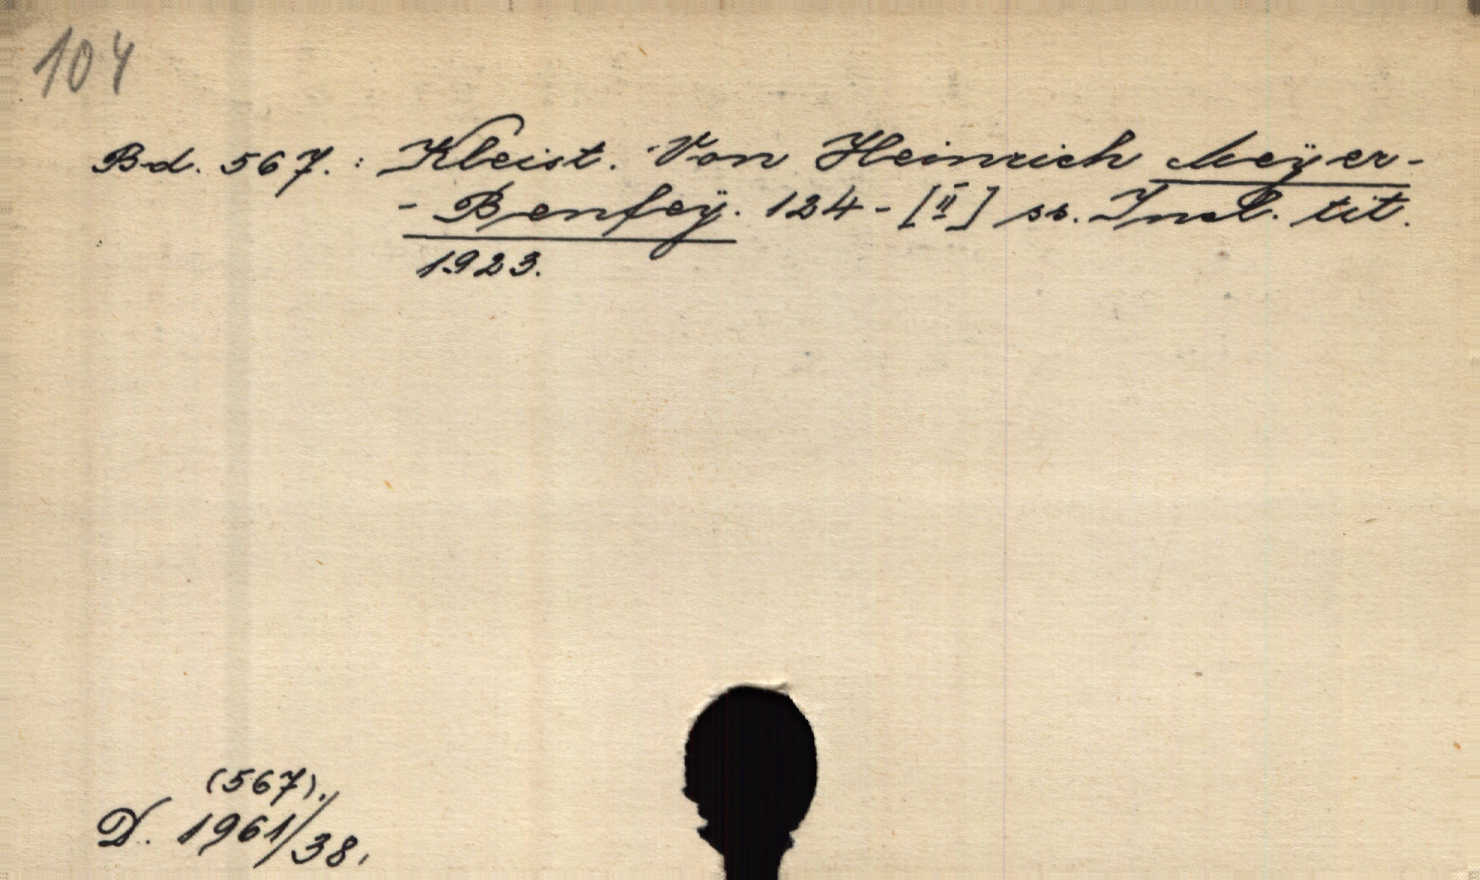 104
Bd. 567. : Kleist. Von Heinrich Meÿer-
- Benfeÿ. 124 - [II] ss. Insl. tit.
1923.
(567).
D. 1961/38.